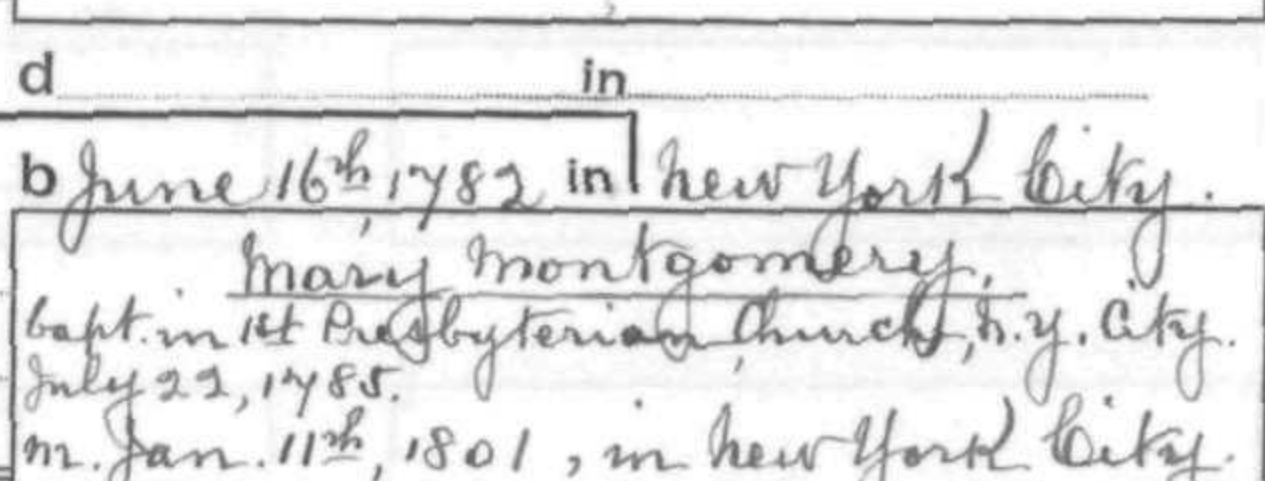 d in
b June 16th, 1782 in New York City.
Mary Montgomery,
bapt. in 1st Presbyterian Church, N.Y. City.
July 22, 1785.
m. Jan. 11th, 1801, in New York City.